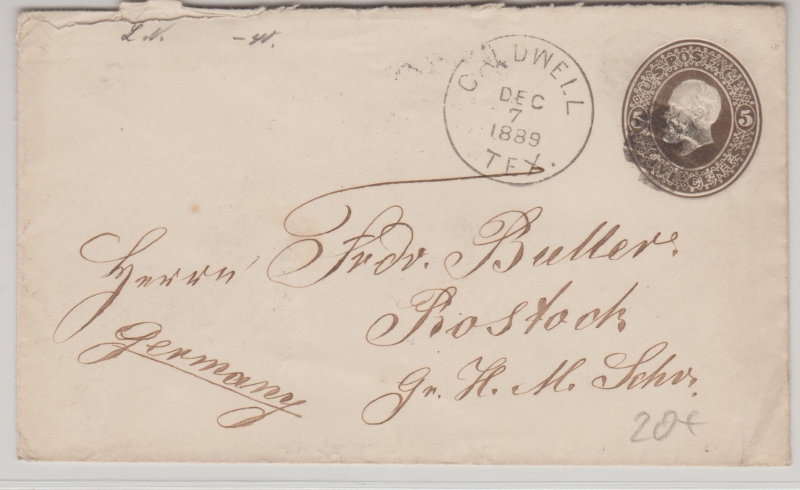 CALDWELL
DEC
7
1889
TEX.
U.S. POSTAGE
5 5
Herrn Frdr. Buller.
Rostock
Germany
Gr. H. M. Schw.
20€